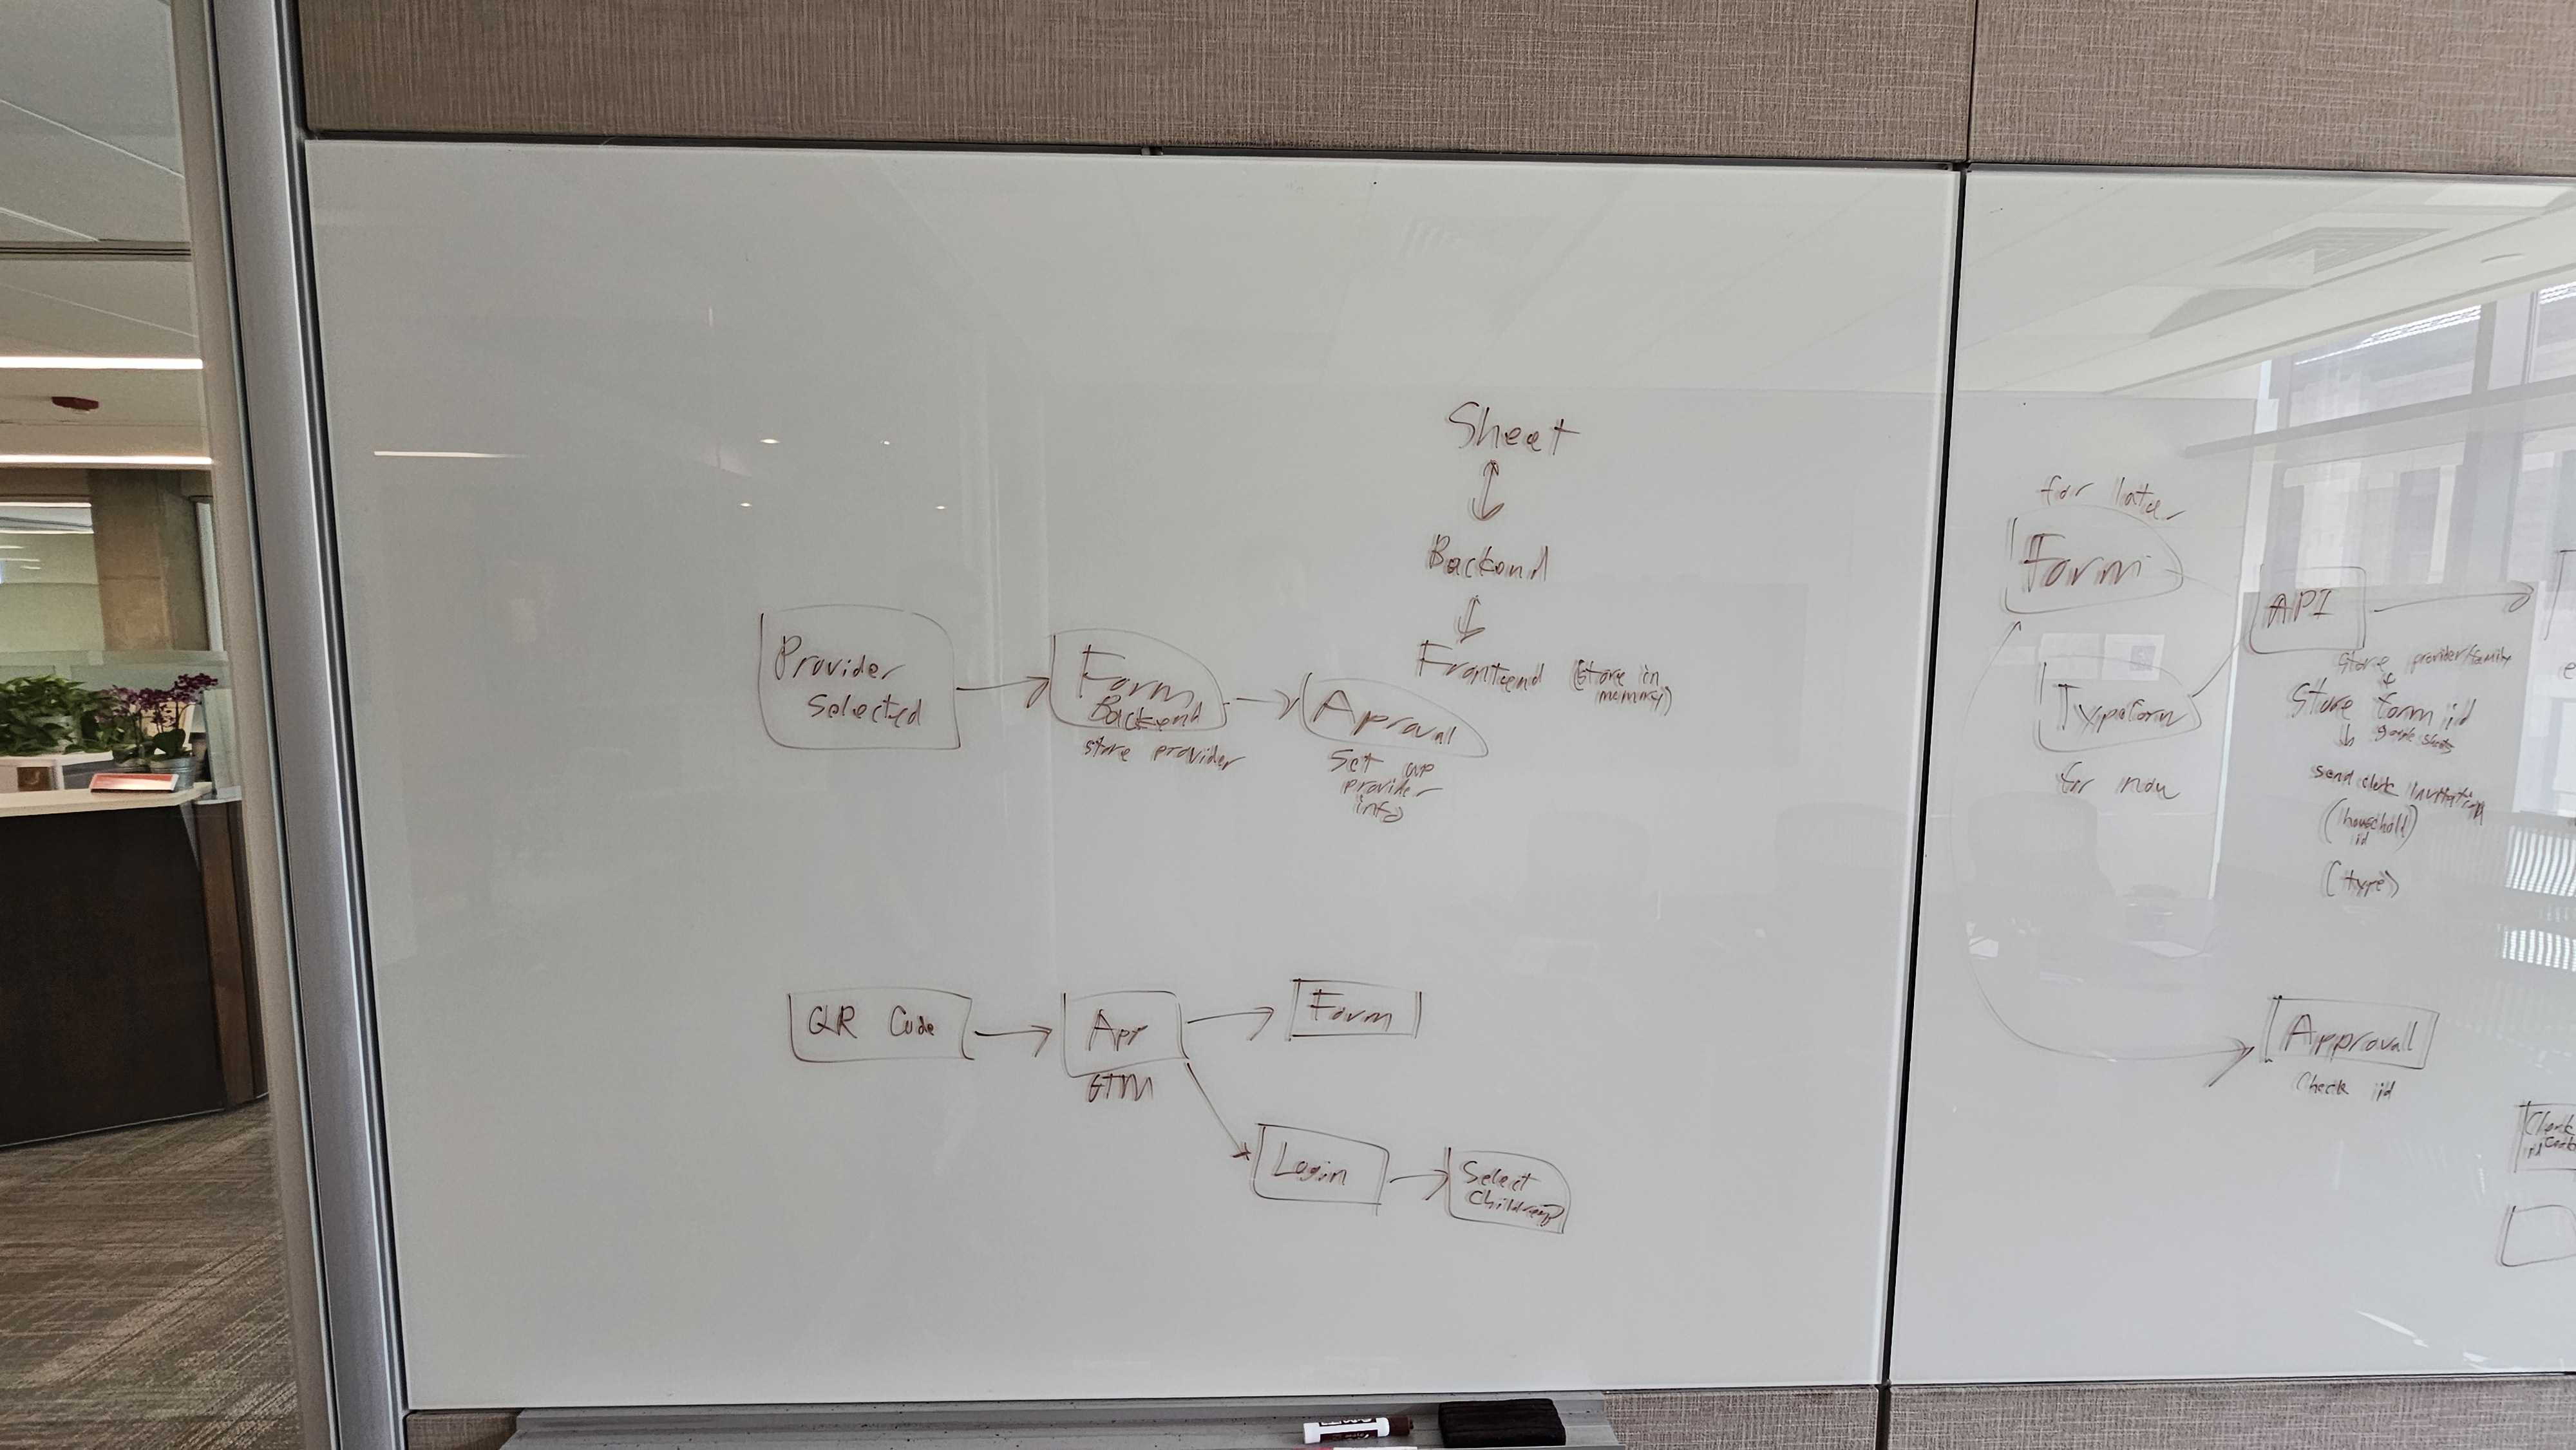 Sheet
Backend
Frontend (Store in
memory)
Provider
Selected
Form
Backend
store provider
Aproval
Set up
provider
info
QR Code
App
GTM
Form
Login
Select
Children
for later
Form
Typeform
for now
API
Store provider/family
Store form id
google sheets
send clerk invitation
(household
id)
(type)
Approval
Check id